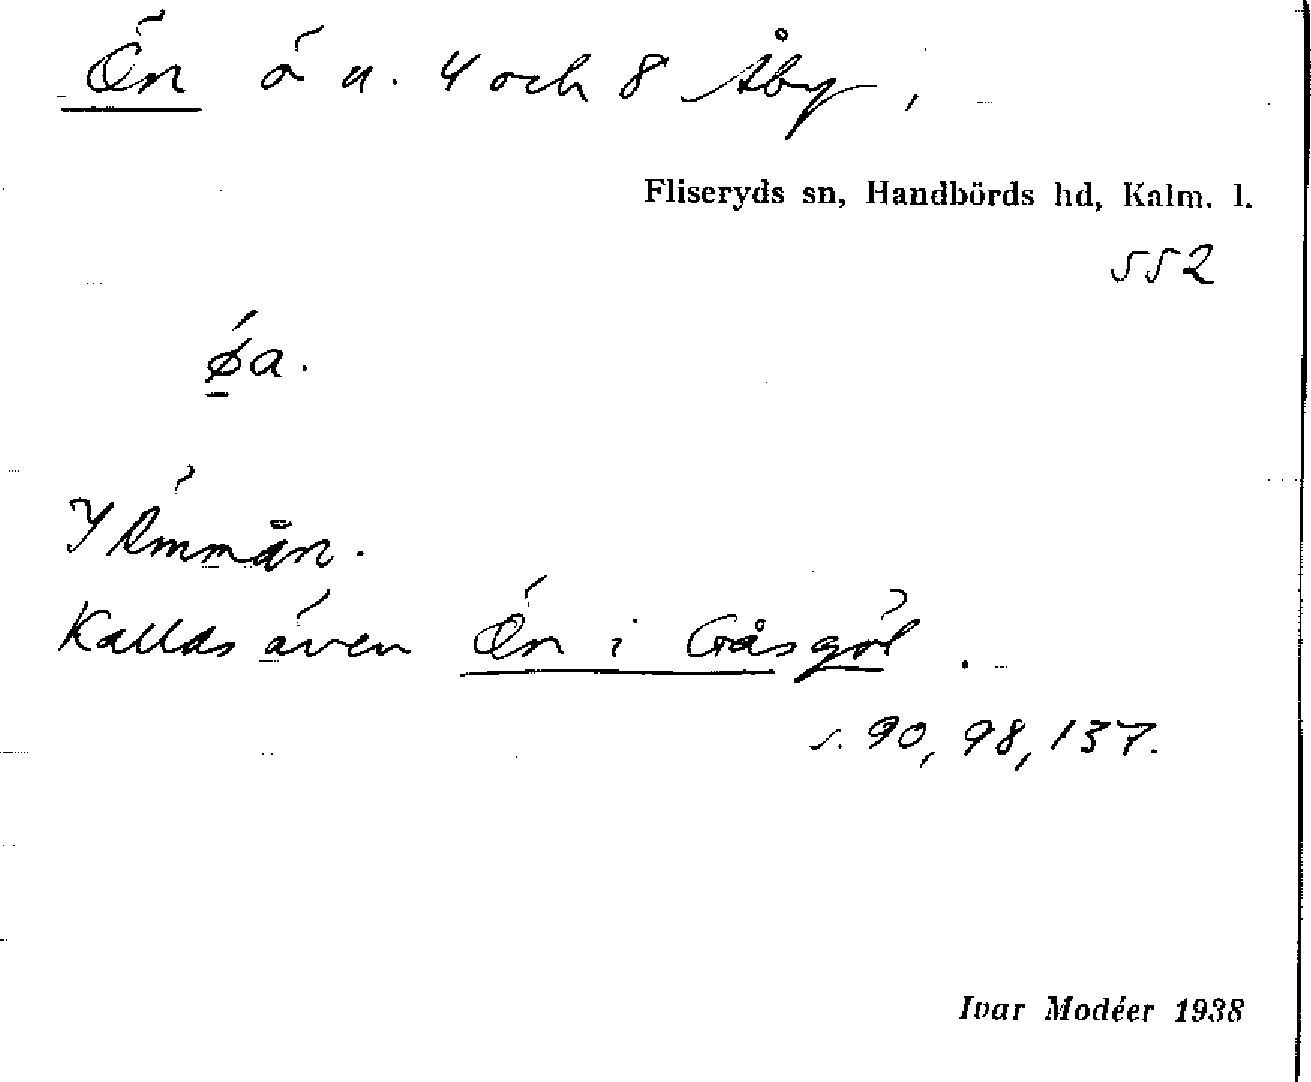 Ön ö u. 4 och 8 Åby,
Fliseryds sn, Handbörds hd, Kalm. l.
552
ǿa.
I Emmån.
Kallas även Ön i Gåsgöl.
s. 90, 98, 137.
Ivar Modéer 1938